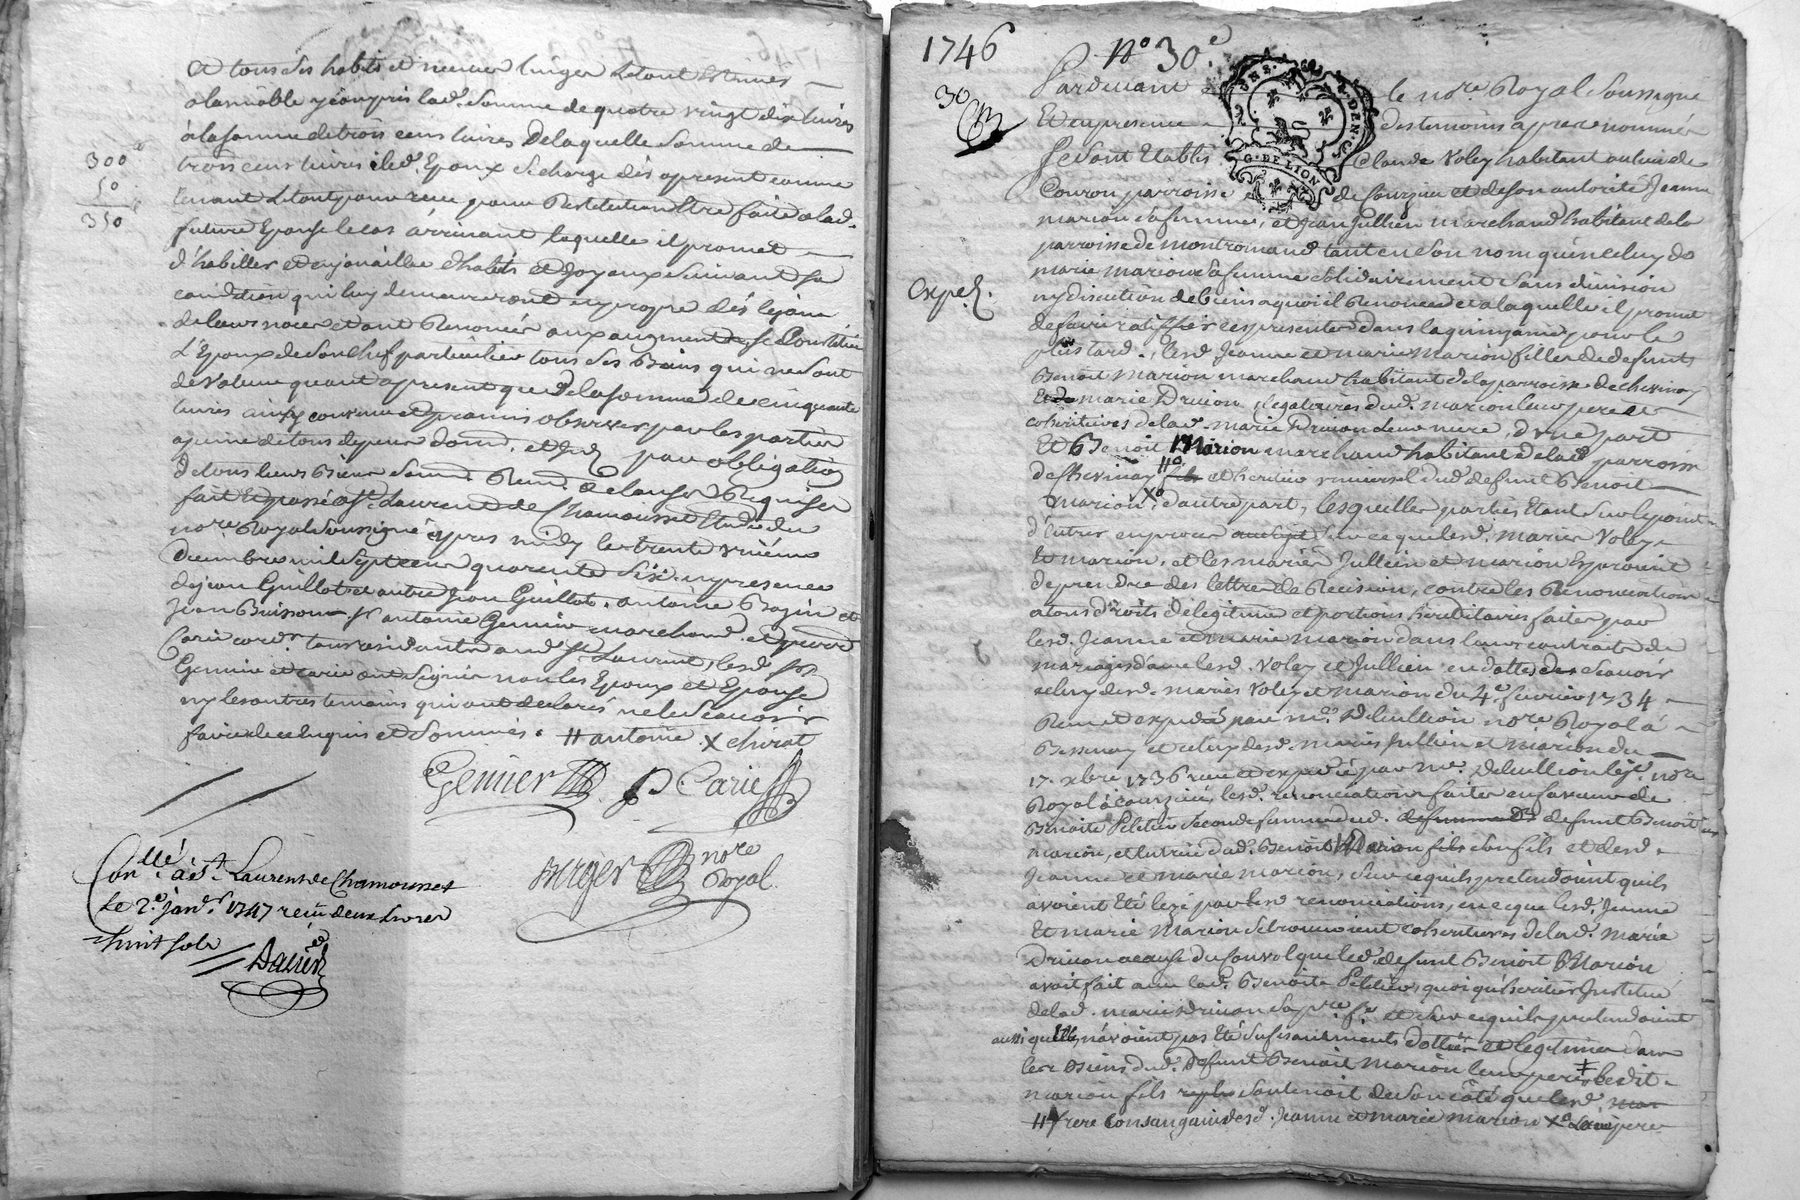 et tous ses habits et menus linges le tout estimés
alamiable y compris lad. Somme de quatre vingt dix livres
ala somme de trois cens livres de laquelle Somme de
trois cens livres led. Epoux Se charge dès apresent comme
tenant le tout pour reçu pour Restitution Etre faite alad.
future Epouse le cas arrivant laquelle il promet
d'habiller et enjoüailler d'habits et Joyaux Suivant Sa
condition qui luy demeureront en propre dès le jour
de leurs noces et ont Renoncé aux augments, se Constitue
L'Epoux de Son Chef particulier tous Ses Biens qui ne Sont
de valeur quant apresent que de la Somme de cinquante
livres ainsy convenu et promis observer par les parties
apeine de tous depens dom. et par obligation
de tous leurs Biens Soum. Renon. & clauses Requises
fait et passé a St. Laurent de Chamousset Etude du
nore. Royal Soussigné apres midy le trente uniéme
Décembre mil Sept cens quarente Six en presence
de jean Guillot et autre Jean Guillot, antoine Bazin et
Jean Buisson, Sr. antoine Genier marchand et pierre
Carie cord.r tous residants aud. St. Laurent, lesd. Srs.
Genier et carie ont Signé non les Epoux et Epouse
ny les autres temoins qui ont declarés ne le Scavoir
faire de ce enquis et Sommés. # antoine X chirat
300
50
350
Genier P Carie
Berger nore Royal
Con.llé à St. Laurens de Chamousset
Le 2.e janv. 1747 reçu deux livres
huit Sols
Dacier
1746 No 30.e
30
Pardevant le nore. Royal Soussigné
Et en presence des temoins apres nommés
Se Sont Etablis Claude Voley habitant au lieu de
GEN. DE LION
Couron parroisse de Courzieu et de Son autorité Jeanne
marion Sa femme, et Jean Jullien marchand habitant de la
parroisse de montromand tant en Son nom qu'en celuy de
marie marion Sa femme Solidairement Sans division
ny discution de biens a quoi il Renonce et a laquelle il promet
exped.
de faire ratiffier ces presentes dans la quinzaine pour le
plus tard, lesd. Jeanne et marie Marion filles de defunt
Benoit Marion marchand habitant de la parroisse de chevinay
Et de marie Drivon, legataires dud. marion leur pere et
coheritieres de lad. marie Drivon leur mere, d'une part
Et Benoit Marion marchand habitant de lad. parroisse
de chevinay fils et heritier universel dud. defunt Benoit
Marion X° d'autre part, lesquelles parties Etant Sur le point
d'entrer en procès Sur ce que lesd. mariés Voley
Et marion, et les mariés Jullien et marion Esperoient
de prendre des lettres de Recision, contre les Renonciations
a tous droits de legitime et portions hereditaires faites par
lesd. Jeanne et marie marion dans leurs contrats de
mariages d'avec lesd. Voley et Jullien en datte Scavoir
celuy desd. mariés Voley et Marion du 4.e fevrier 1734
Reçu et expedié par me. Delullion nore. Royal à
Bessenay et celuy desd. mariés Jullien et marion du
17. xbre 1736 reçu et expedié par me. Delullion le je. nore
Royal à Courzieu, lesd. renonciations faites en faveur de
Benoite Peletier Seconde femme dud. defunt Benoit
marion, et lutrice dud. Benoit Marion fils Son fils et desd.
Jeanne et marie marion, Sur ce qu'ils pretendoient qu'ils
avoient Eté lezé par lesd. renonciations, en ce que lesd. Jeanne
Et marie Marion Se trouvoient coheritieres de lad. marie
Drivon a cause du convol que led. defunt Benoit Marion
avoit fait avec lad. Benoite Peletier, quoi qu'heritier Institué
de lad. marie Drivon Sa p.re fe. et Sur ce qu'ils pretendoient
aussi qu'elles n'avoient pas Eté Sufisamments dottées et legitimées dans
les Biens dud. defunt Benoit Marion leur pere, # Ledit
marion fils Soutenoit de Son côté que lesd.
# frere Consanguin desd. Jeanne et marie marion X° pere